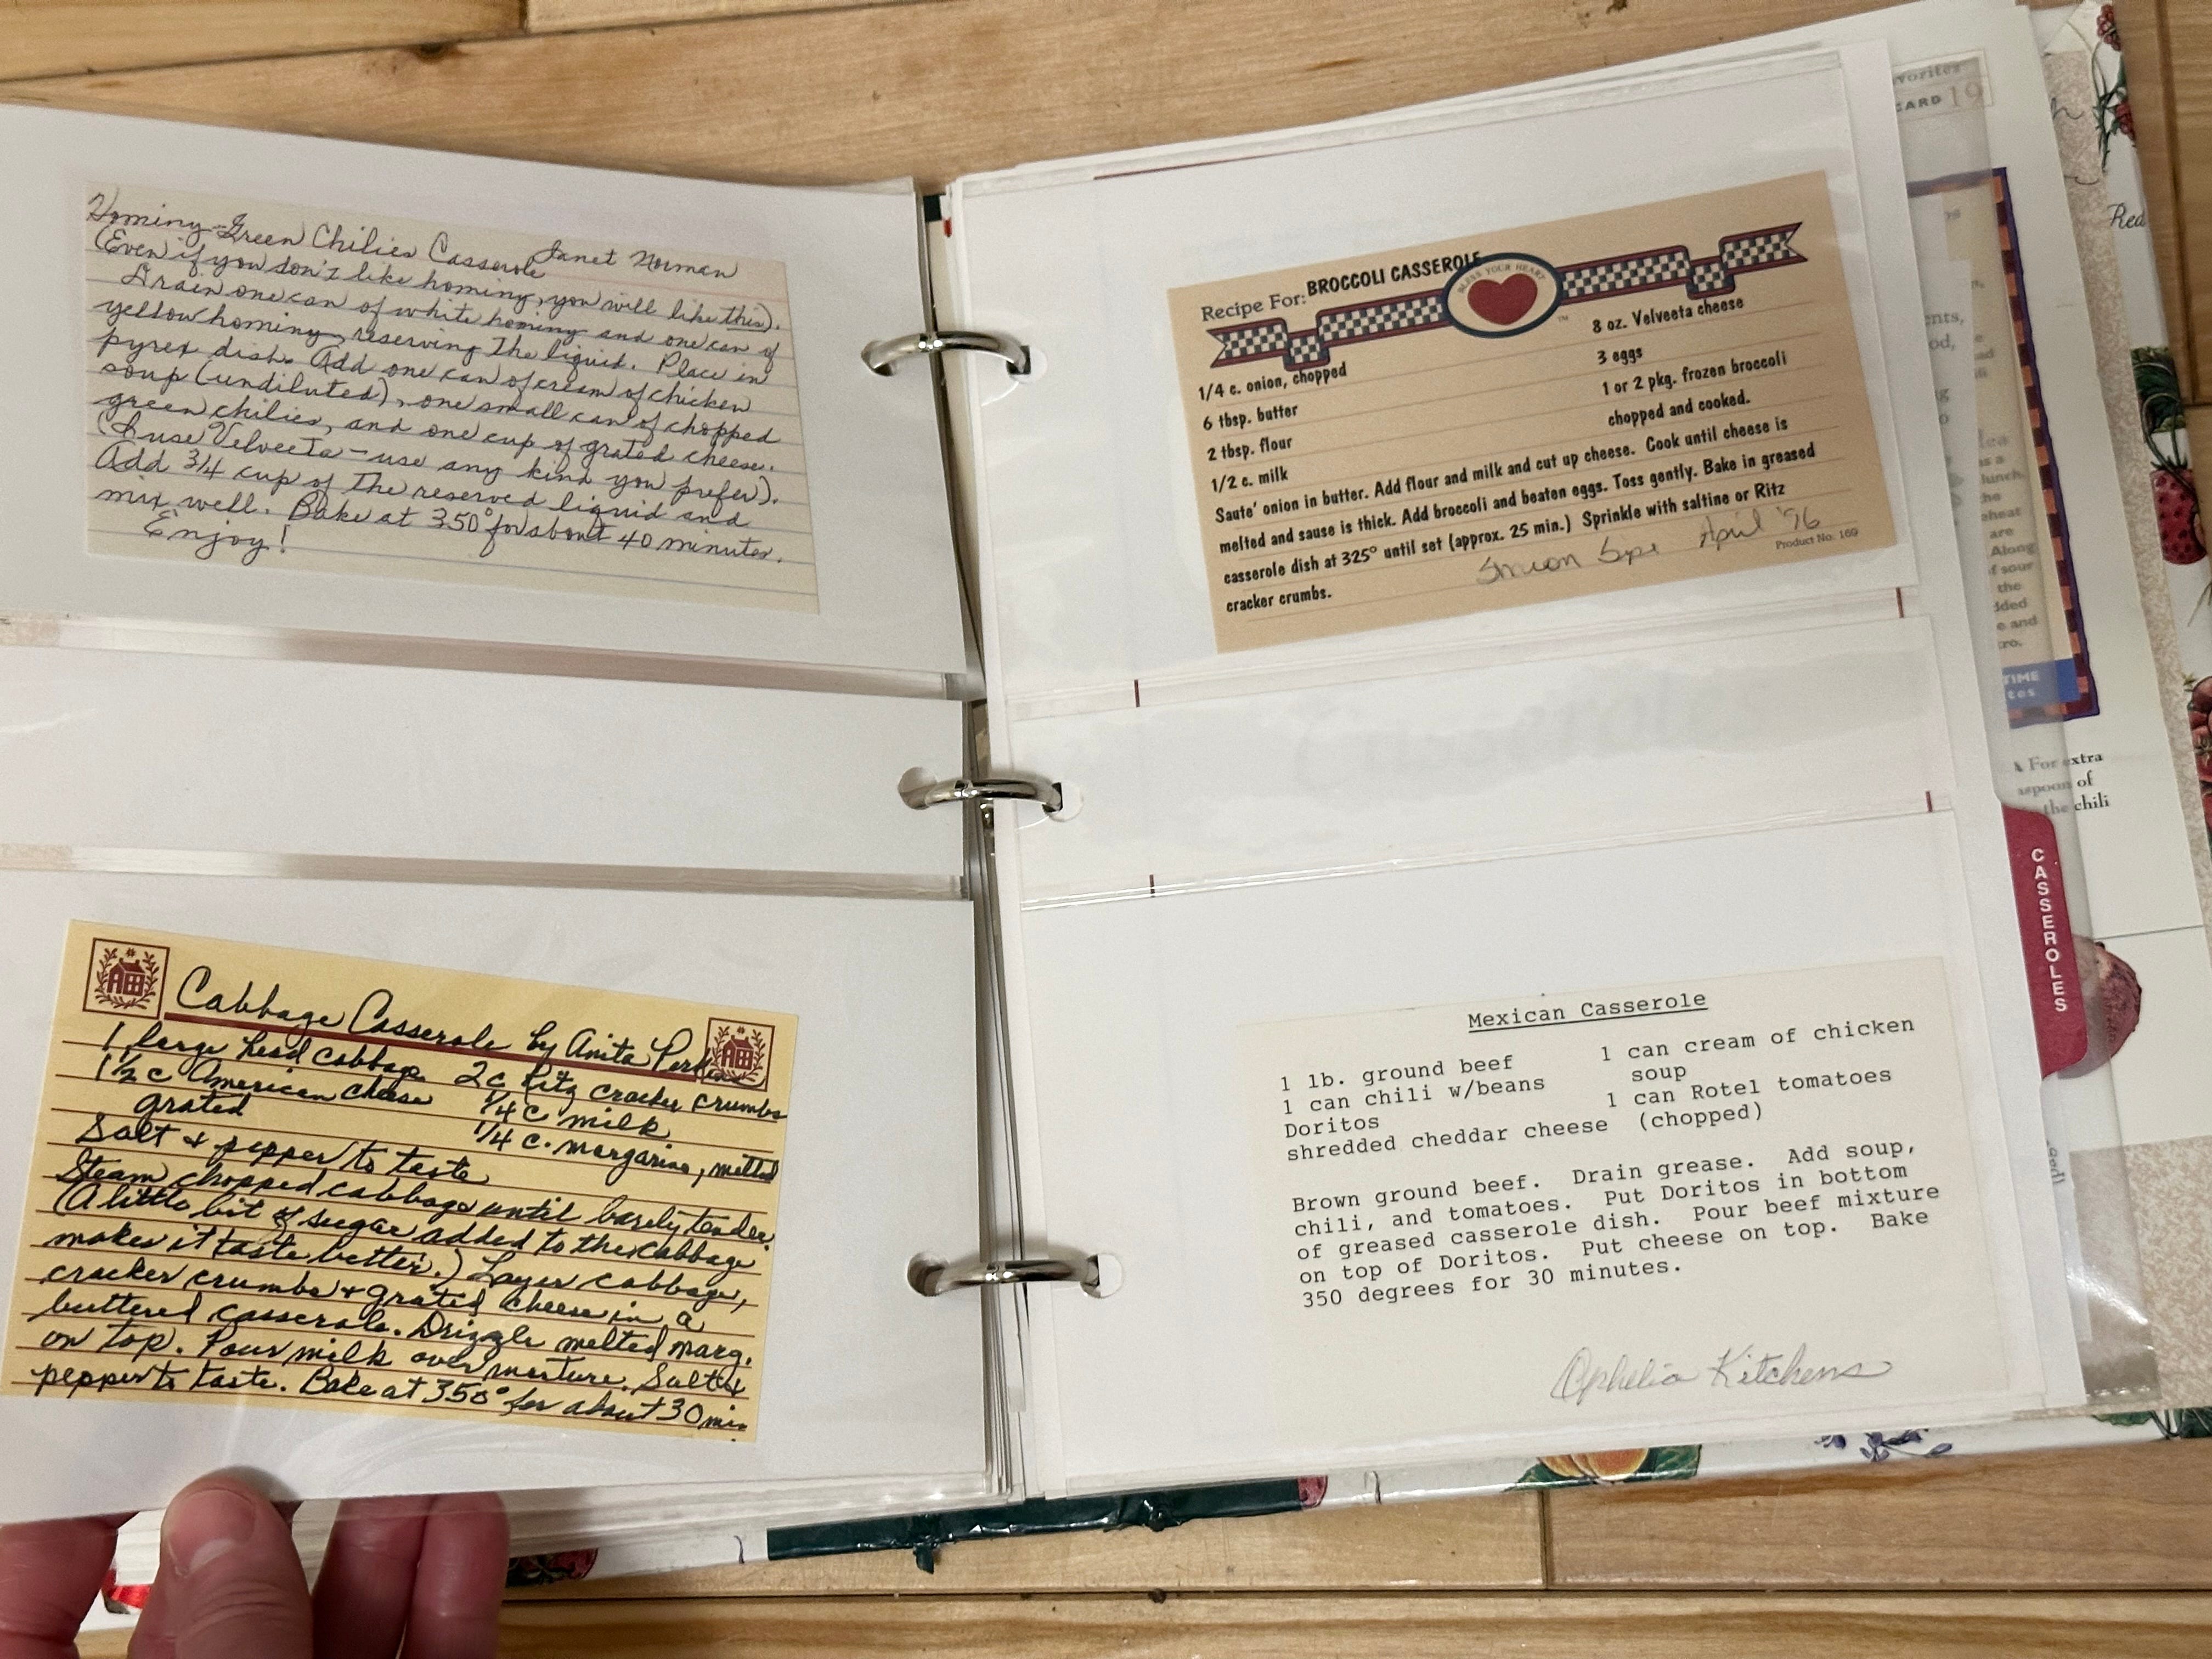 Hominy-Green Chilies Casserole Janet Norman
(Even if you don't like hominy, you will like this).
Drain one can of white hominy and one can of
yellow hominy, reserving the liquid. Place in
pyrex dish. Add one can of cream of chicken
soup (undiluted), one small can of chopped
green chilies, and one cup of grated cheese.
(I use Velveeta - use any kind you prefer).
Add 3/4 cup of the reserved liquid and
mix well. Bake at 350° for about 40 minutes.
Enjoy!
Cabbage Casserole by Anita
1 large head cabbage 2 c Ritz cracker crumbs
1 1/2 c American cheese 1/4 c milk
grated 1/4 c. margarine, melted
Salt & pepper to taste
Steam chopped cabbage until barely tender.
(A little bit of sugar added to the cabbage
makes it taste better.) Layer cabbage,
cracker crumbs + grated cheese in a
buttered casserole. Drizzle melted marg.
on top. Pour milk over mixture. Salt &
pepper to taste. Bake at 350° for about 30 min.
Recipe For: BROCCOLI CASSEROLE
BLESS YOUR HEART
TM
1/4 c. onion, chopped 8 oz. Velveeta cheese
6 tbsp. butter 3 eggs
2 tbsp. flour 1 or 2 pkg. frozen broccoli
1/2 c. milk chopped and cooked.
Saute' onion in butter. Add flour and milk and cut up cheese. Cook until cheese is
melted and sause is thick. Add broccoli and beaten eggs. Toss gently. Bake in greased
casserole dish at 325° until set (approx. 25 min.) Sprinkle with saltine or Ritz
cracker crumbs.
Sharon April '96
Product No. 169
Mexican Casserole
1 lb. ground beef 1 can cream of chicken
1 can chili w/beans soup
Doritos 1 can Rotel tomatoes
shredded cheddar cheese (chopped)
Brown ground beef. Drain grease. Add soup,
chili, and tomatoes. Put Doritos in bottom
of greased casserole dish. Pour beef mixture
on top of Doritos. Put cheese on top. Bake
350 degrees for 30 minutes.
Ophelia Kitchens
CASSEROLES
CARD 19
Red
lunch.
are
Along
of sour
the
and
TIME
For extra
of
the chili